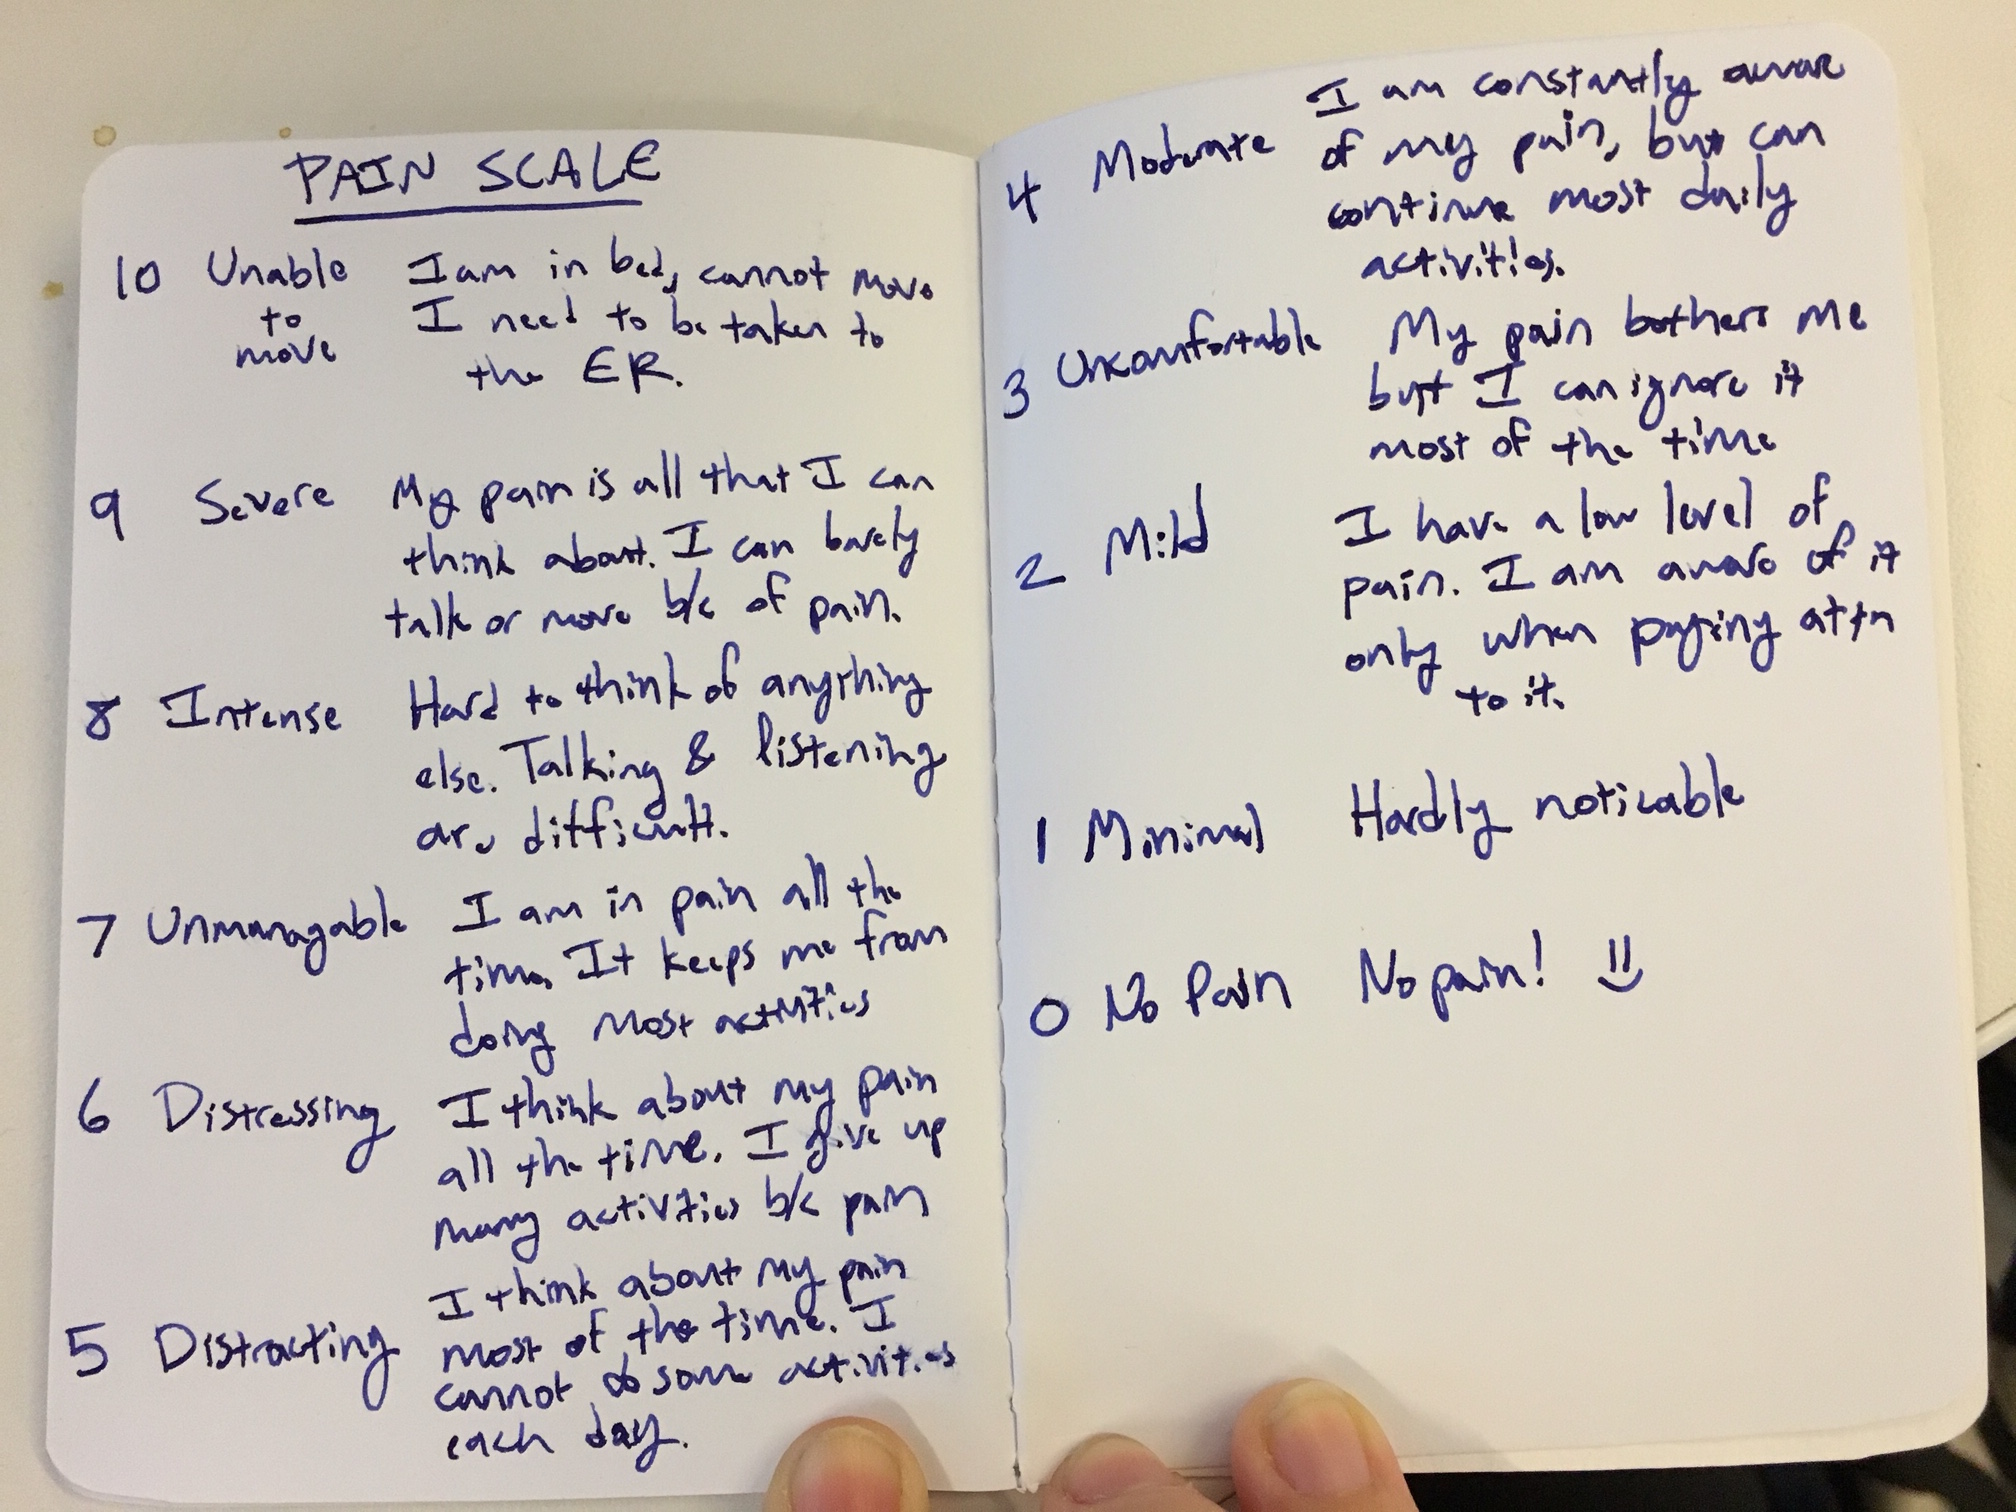 PAIN SCALE
10 Unable to move I am in bed, cannot move
I need to be taken to
the ER.
9 Severe My pain is all that I can
think about. I can barely
talk or move b/c of pain.
8 Intense Hard to think of anything
else. Talking & listening
are difficult.
7 Unmanagable I am in pain all the
time. It keeps me from
doing most activities
6 Distressing I think about my pain
all the time. I give up
many activities b/c pain
5 Distracting I think about my pain
most of the time. I
cannot do some activities
each day.
4 Moderate I am constantly aware
of my pain, but can
continue most daily
activities.
3 Uncomfortable My pain bothers me
but I can ignore it
most of the time
2 Mild I have a low level of
pain. I am aware of it
only when paying attn
to it.
1 Minimal Hardly noticable
0 No Pain No pain! =)